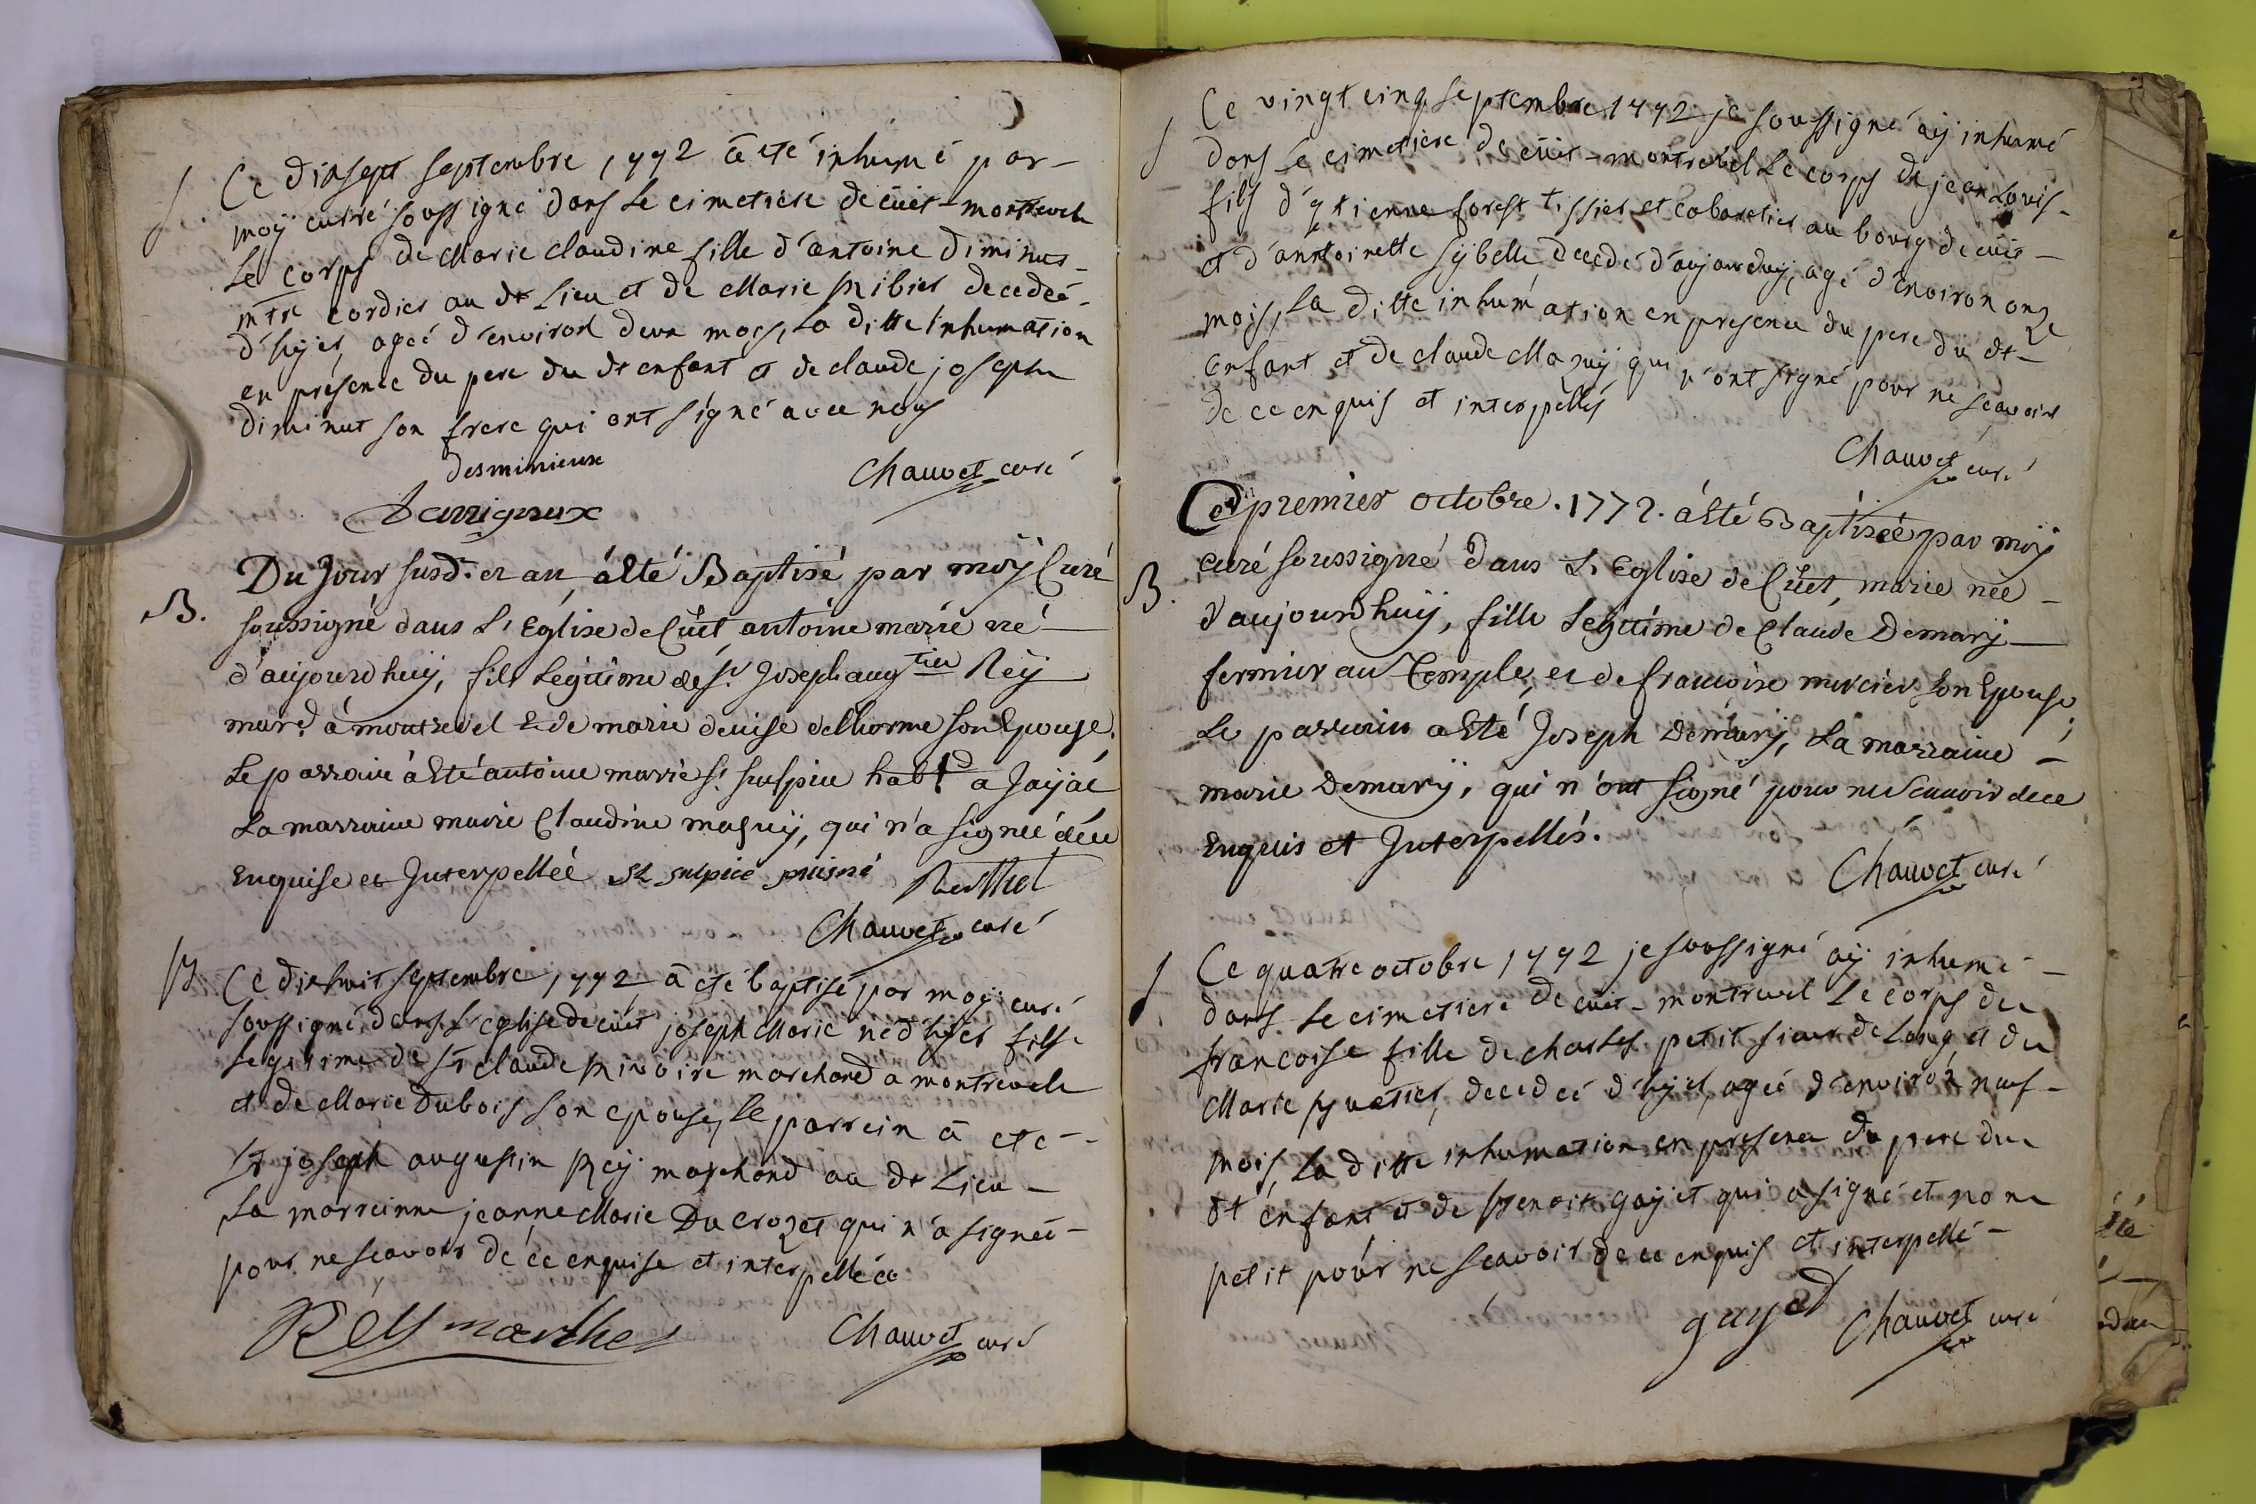 S. Ce dixsept septembre 1772 a eté inhumé par
moÿ curré soussigné dans Le cimetiere de cüet-montrevele
Le corps de Marie claudine fille d'antoine diminus
mtre cordier au dt Lieu et de Marie Ribier decedeé
d'hyer, ageé d'environ deux mois, La ditte Inhumation
en présence du pere du dt enfant et de claude joseph
diminut son frere qui ont signé avec nous
desminieux
Chauvet curé
Du Jour susd. et an, áEté Baptisé par moÿ Curé
B.
soussigné dans L'Eglise de Cüet antoine marie né
d'aujourdhuÿ, fils Legitime de sr. Joseph augtin Reÿ
març.d à montrevel & de marie denise delhorme son Epouse.
Le parrain áEté antoine marie st. sulpice habt a Jaÿac
La marraine marie Claudine maguÿ, qui n'a signeé dece
Enquise et Interpelleé st sulpice puisné
Chauvet curé
B. Ce dixhuit septembre 1772 a eté baptisé par moÿ curé
soussigné dans L'eglise de cüet joseph Marie né d'hÿer fils
Legitime de sr claude Rivoire marchand a montrevele
et de Marie Dubois son epouse, Le parrein a eté
sr joseph augustin Reÿ marchand au dt Lieu
La marreinne jeanne Marie Du crozet qui n'a signeé
pour ne scavoir de ce enquise et interpelleé
REY marthe
Chauvet curé
S. Ce vingt cinq septembre 1772 je soussigné aÿ inhumé
dans Le cimetiere de cüet-montrevel Le corps de jean Louis
fils d'etienne forest tissier et cabaretier au bourg de cüet
et d'anntoinette sÿbelle decedé d'aujourduÿ, agé d'environ onze
mois, La ditte inhumation en presence du pere du dt
enfant et de claude Mazuÿ qui n'ont signé pour ne scavoir
de ce enquis et interpellés
Chauvet curé
Ce premier octobre. 1772. áEté Baptiseé par moÿ
B.
curé soussigné dans L'Eglise de Cüet, marie neé
d'aujourdhuÿ, fille Legitime de Claude Demarÿ
fermier au Temple, et de francoise mercier son Epouse
Le parrain aEté Joseph Demarÿ, La marraine
marie Demarÿ, qui n'ont signé pour ne scauvoir de ce
Enquis et Interpellés.
Chauvet curé
S. Ce quatre octobre 1772 je soussigné aÿ inhumé
dans Le cimetiere de cüet-montrevel Le corps de
francoise fille de charles petit sieur de Long et de
Marie decedeé d'hyer, ageé d'environ neuf
mois, La ditte inhumation en presence du pere du
dt enfant et de Benoit gaÿet qui a signé et non
petit pour ne scavoir de ce enquis et interpellé
gayet
Chauvet curé